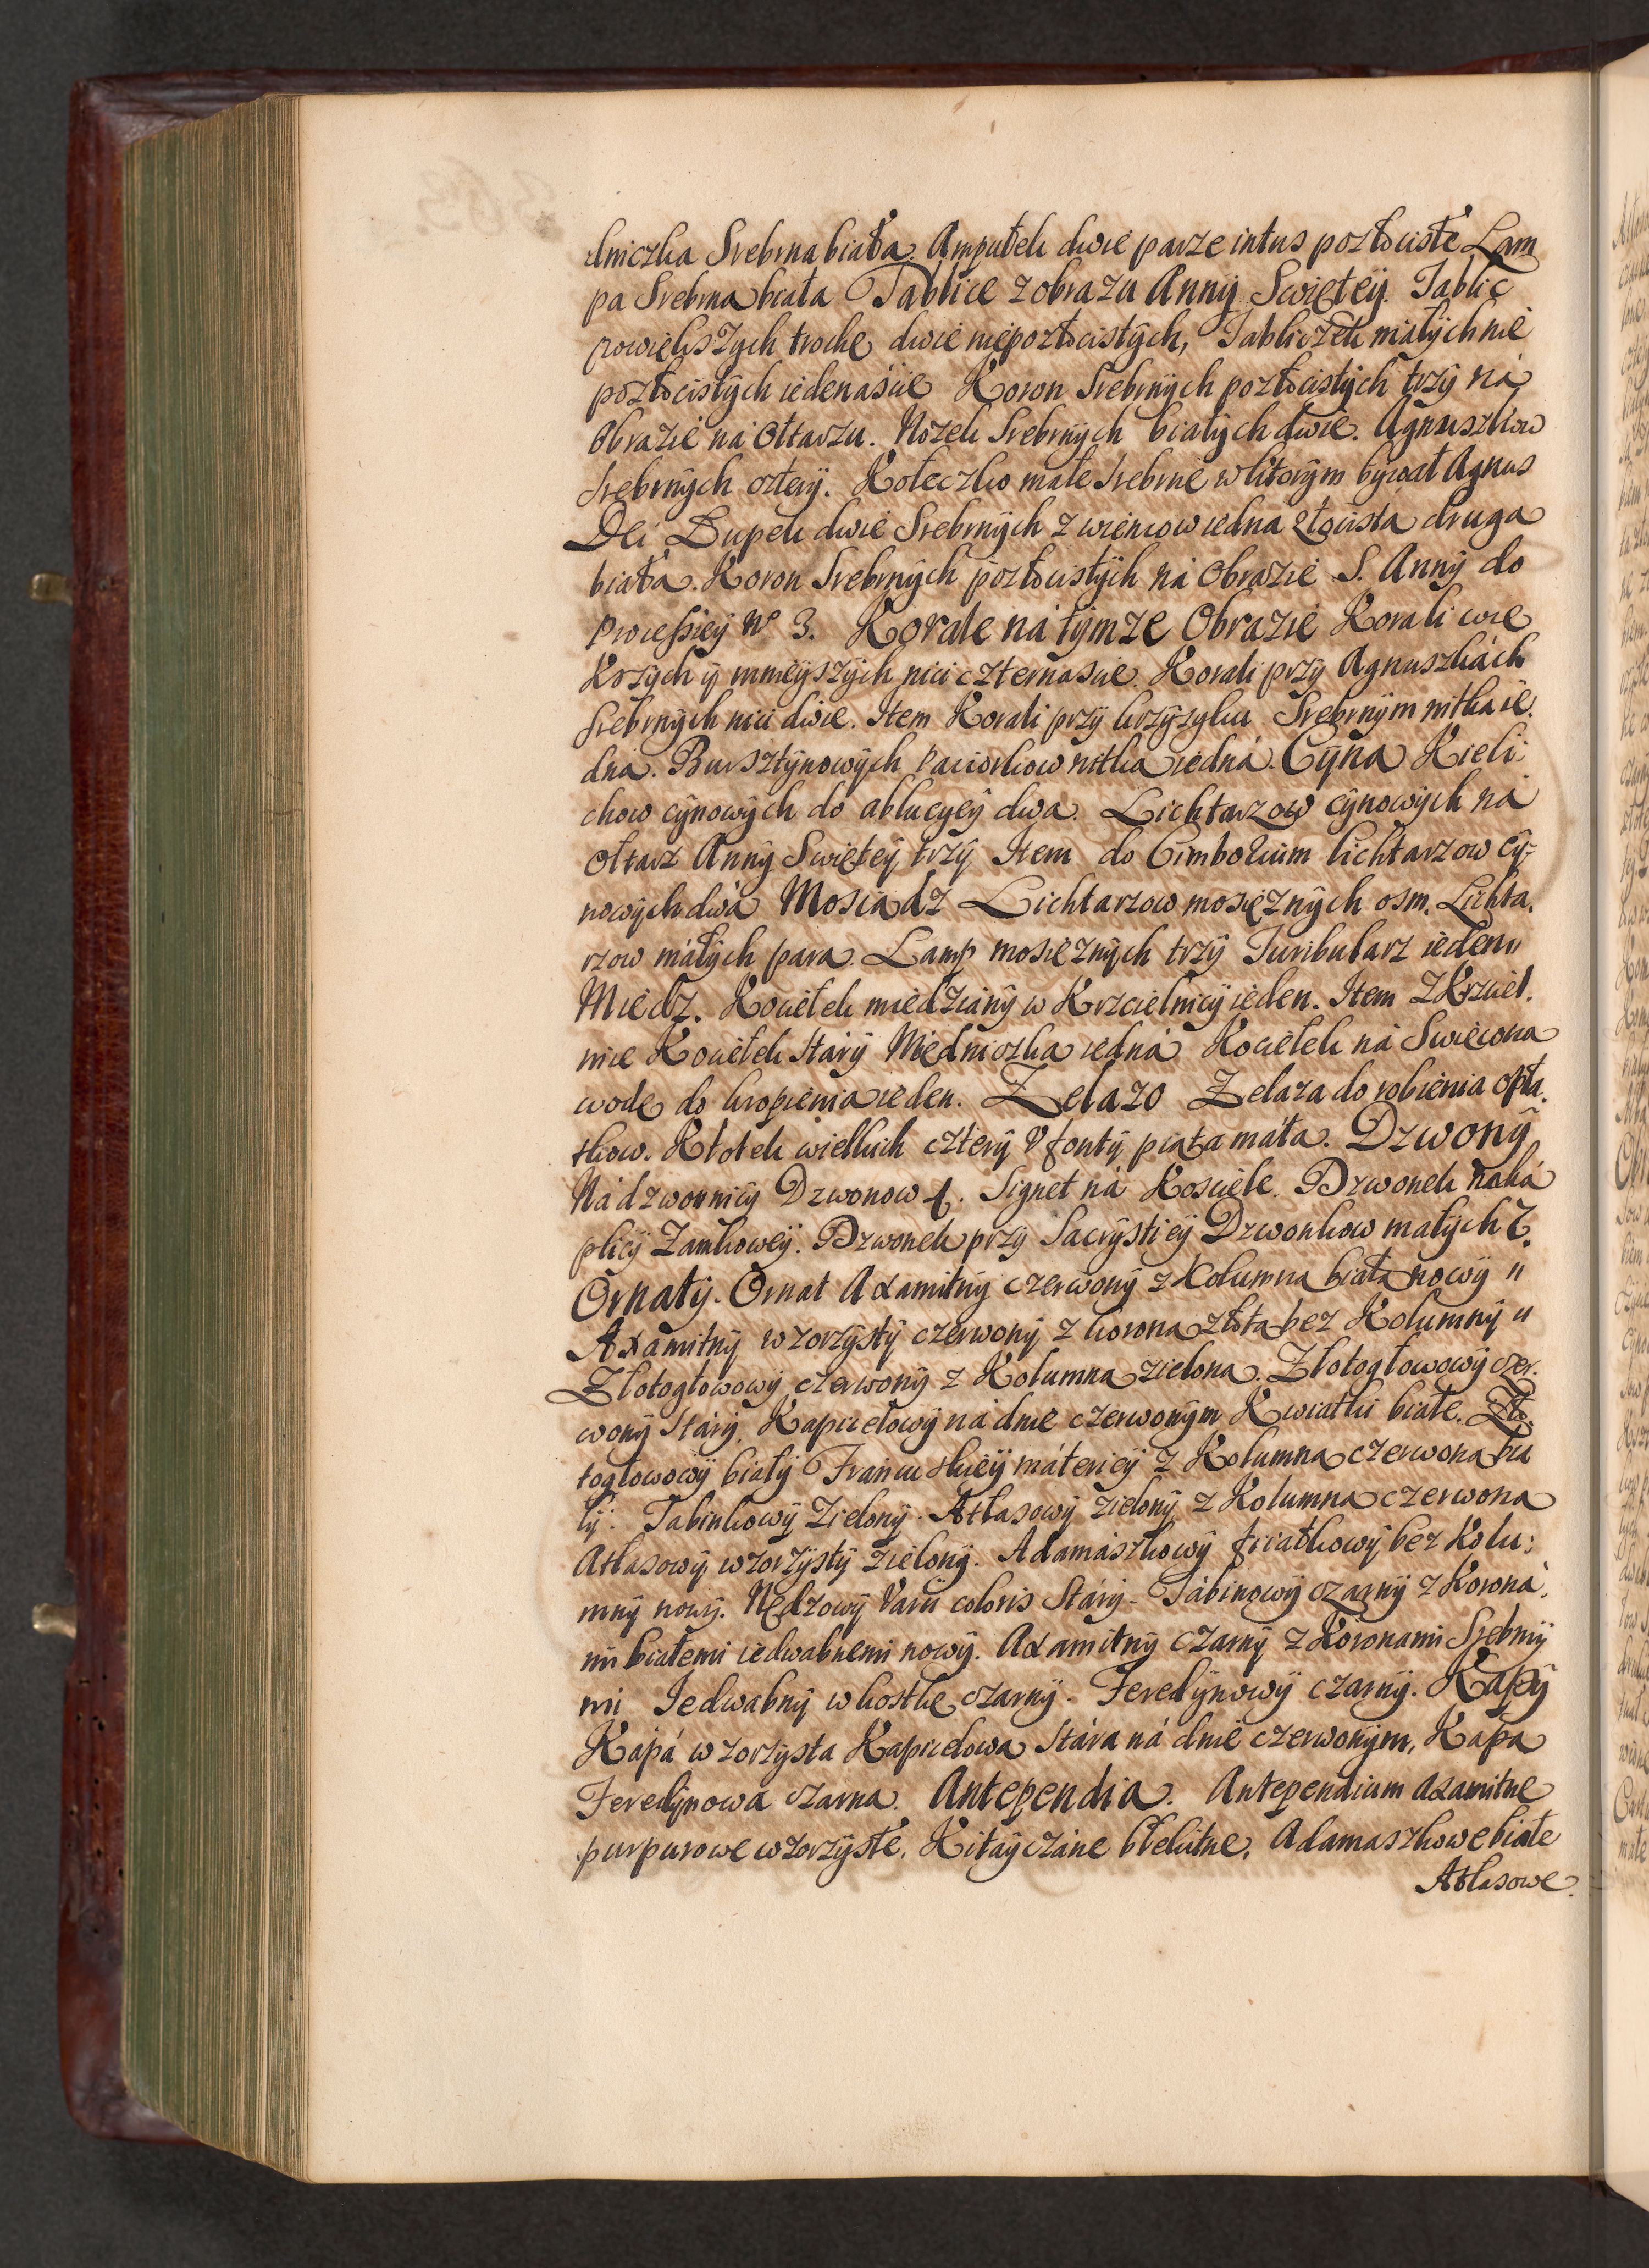 dniczka Srebrna biała. Ampułek dwie parze intus pozłociste Lam
pa Srebrna biała Tablice z obrazu Anny Swiętey. Tablic
powiększych trochę dwie niepozłocistych, Tabliczek małych nie
pozłocistych iedenaście Koron Srebrnych pozłocistych trzy ná
Obrazie ná Ołtarzu. Nożek Srebrnych białych dwie. Agnuszkow
Srebrnych cztery. Kołeczko małe Srebrne w ktorym bywał Agnus
Dei Łupek dwie Srebrnych z wiencow iedna złocista druga
biała. Koron Srebrnych pozłocistych ná Obrazie S. Anny do
Processiey No 3. Korale ná tymze Obrazie Korali wie
kszych y mnieyszych nici czternascie. Korali przy Agnuszkách
Srebrnych nici dwie. Item Korali przy krzyżyku Srebrnym nitka ie.
dná. Bursztynowych Paciorkow nitka iedná. Cyna Kieli:
chow cynowych do ablucyey dwa. Lichtarzow cynowych ná
ołtarz Anny Swiętey trzy Item do Cimborium lichtarzow cy-
nowych dwá Mosiądz Lichtarzow mosiężnych osm. Lichta.
rzow máłych para. Lamp mosiężnych trzy Turibularz ieden
Miedz. Kociełek miedziány w Krzcielnicy ieden. Item z Krzciel.
nice Kociełek stáry Miedniczka iedná Kociełek ná Swięcona
wodę do kropienia ieden. Zelazo Zelaza do robienia opła.
tkow. Kłotek wielkich cztery V fonty piąta máła. Dzwony
Ná dzwonnicy Dzwonow 4. Signet ná Kosciele. Dzwonek ná ká
plicy Zamkowey. Dzwonek przy Sacrystiey Dzwonkow małych 7.
Ornaty. Ornat Axamitny czerwony z Kolumna biała nowy
Axamitny wzorzysty czerwony z korona złota bez Kolumny
Złotogłowowy czerwony z Kolumna zielona. Złotogłowowy czer.
wony Stáry. Kapicelowy ná dnie czerwonym Kwiatki białe. Zło.
togłowowy biały Francuskiey máteriey z Kolumna czerwona bia
ły. Tabinkowy Zielony. Atłasowy zielony z Kolumna czerwona
Atłasowy wzorzysty zielony. Adamaszkowy fiiałkowy bez Kolu:
mny nowy. Nędzowy Varii coloris Stáry. Tábinowy czarny z Koroná.
mi białemi iedwabnemi nowy. Axamitny czarny z Koronami Srebrny
mi Iedwabny w kostkę czarny. Feredynowy czarny. Kapy
Kápá wzorzysta Kapicelowa Stára ná dnie czerwonym, Kapa
Feredynowa czarna. Antependia. Antependium axamitne
purpurowe wzorzyste. Kitayczáne błekitne, Adamaszkowe białe
Atłasowe